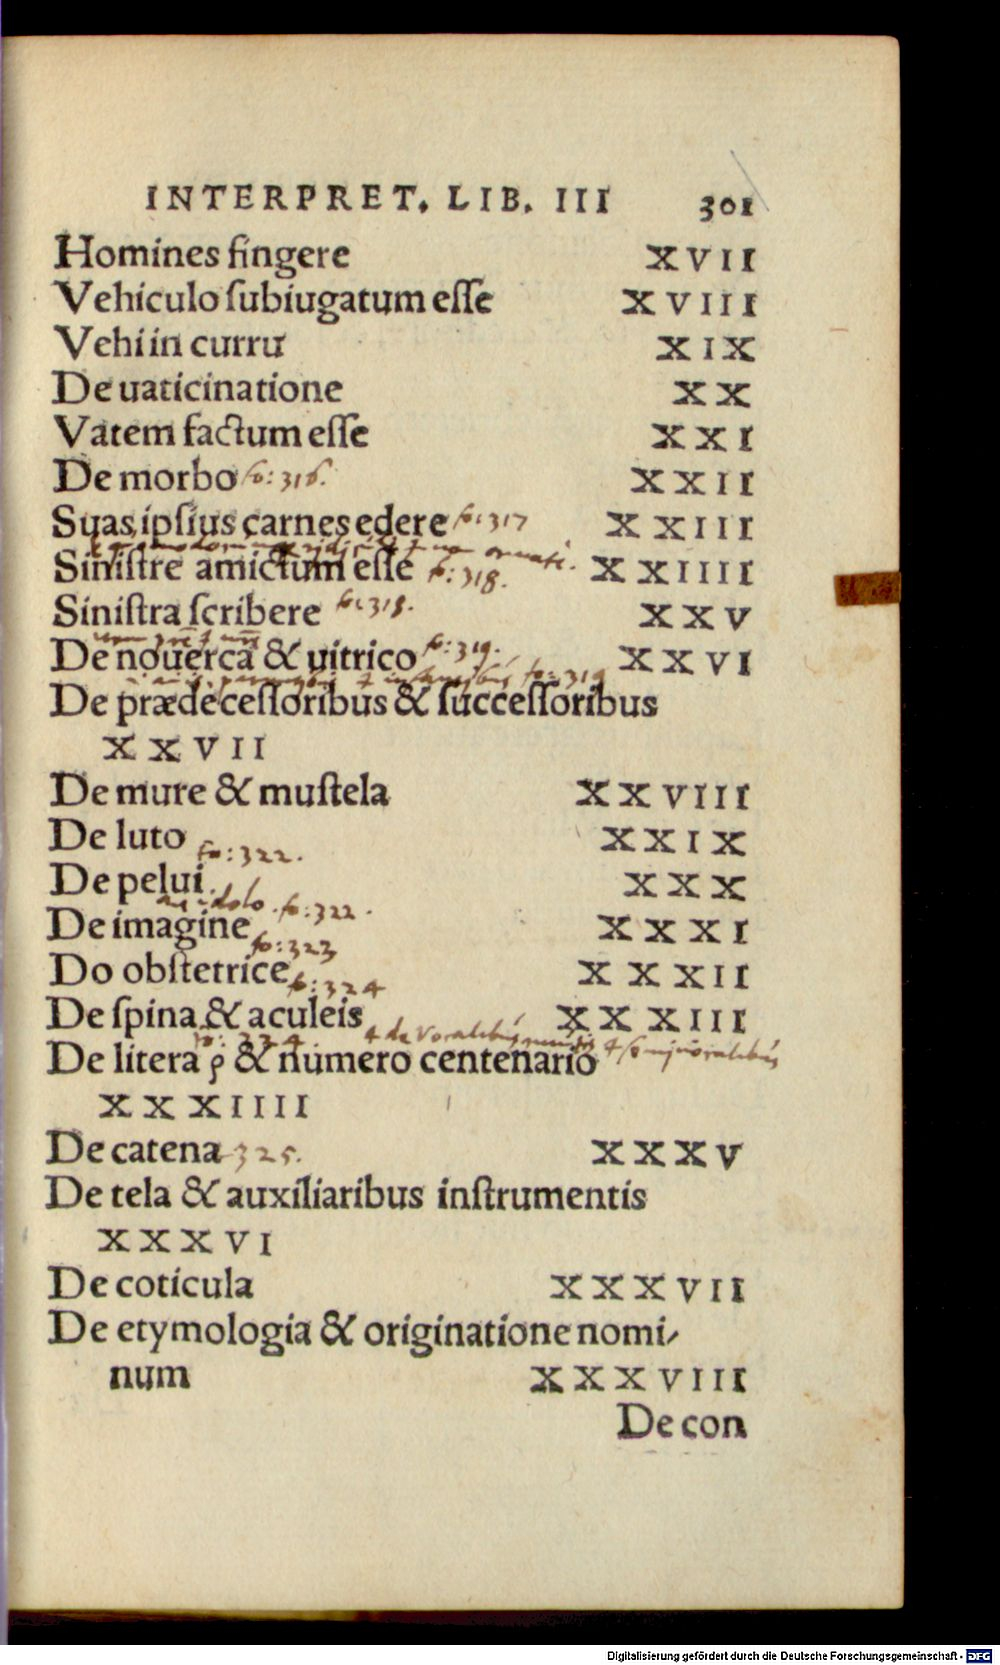 INTERPRET. LIB. III 301
Homines fingere XVII
Vehiculo ſubiugatum eſſe XVIII
Vehi in curru XIX
De uaticinatione XX
Vatem factum eſſe XXI
De morbo fo: 316. XXII
Suas ipſius carnes edere fo: 317 XXIII
Siniſtre amictum eſſe fo: 318. XXIIII
Siniſtra ſcribere fo: 318. XXV
De nouerca & uitrico fo: 319. XXVI
fo: 319
De prædeceſſoribus & ſucceſſoribus
XXVII
De mure & muſtela XXVIII
De luto XXIX
fo: 322.
De pelui XXX
idolo. fo: 322.
De imagine XXXI
fo: 323
Do obſtetrice XXXII
fo: 324
De ſpina & aculeis XXXIII
fo: 324
De litera ρ & numero centenario
XXXIIII
De catena 325. XXXV
De tela & auxiliaribus inſtrumentis
XXXVI
De coticula XXXVII
De etymologia & originatione nomi⸗
num XXXVIII
De con
Digitalisierung gefördert durch die Deutsche Forschungsgemeinschaft - DFG